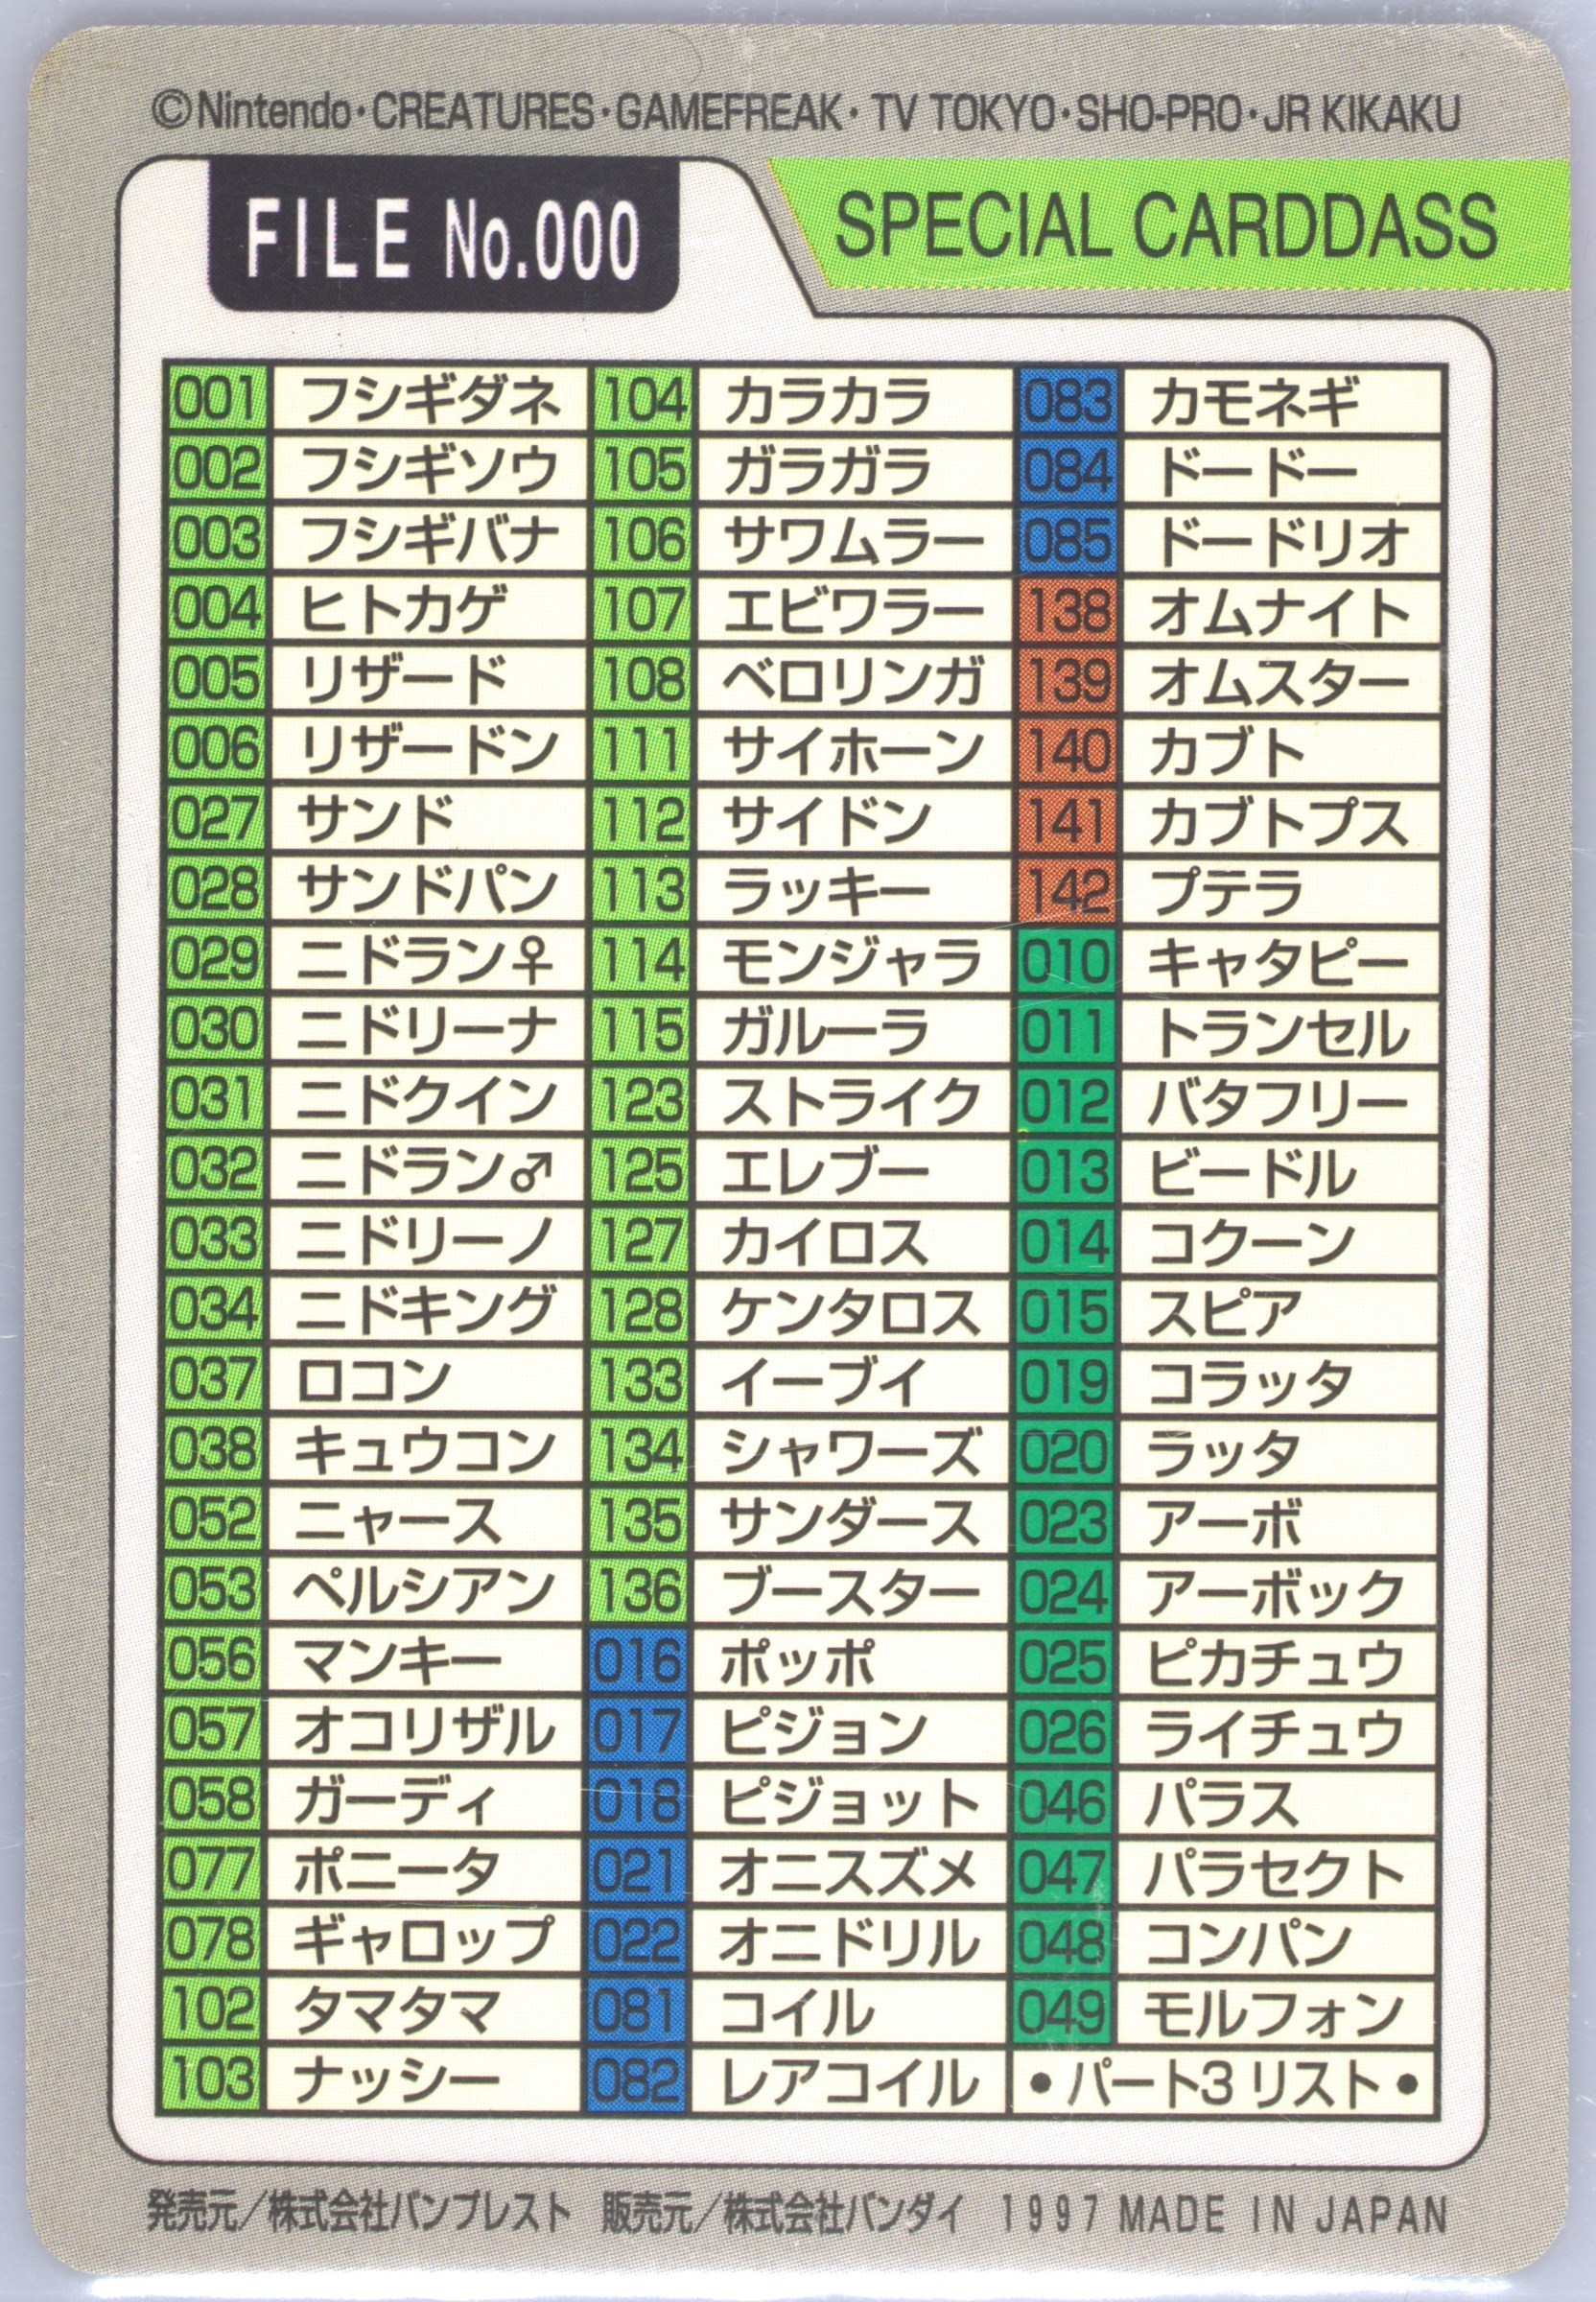 ©Nintendo・CREATURES・GAMEFREAK・TV TOKYO・SHO-PRO・JR KIKAKU
FILE No.000 SPECIAL CARDDASS
001 フシギダネ 104 カラカラ 083 カモネギ
002 フシギソウ 105 ガラガラ 084 ドードー
003 フシギバナ 106 サワムラー 085 ドードリオ
004 ヒトカゲ 107 エビワラー 138 オムナイト
005 リザード 108 ベロリンガ 139 オムスター
006 リザードン 111 サイホーン 140 カブト
027 サンド 112 サイドン 141 カブトプス
028 サンドパン 113 ラッキー 142 プテラ
029 ニドラン♀ 114 モンジャラ 010 キャタピー
030 ニドリーナ 115 ガルーラ 011 トランセル
031 ニドクイン 123 ストライク 012 バタフリー
032 ニドラン♂ 125 エレブー 013 ビードル
033 ニドリーノ 127 カイロス 014 コクーン
034 ニドキング 128 ケンタロス 015 スピア
037 ロコン 133 イーブイ 019 コラッタ
038 キュウコン 134 シャワーズ 020 ラッタ
052 ニャース 135 サンダース 023 アーボ
053 ペルシアン 136 ブースター 024 アーボック
056 マンキー 016 ポッポ 025 ピカチュウ
057 オコリザル 017 ピジョン 026 ライチュウ
058 ガーディ 018 ピジョット 046 パラス
077 ポニータ 021 オニスズメ 047 パラセクト
078 ギャロップ 022 オニドリル 048 コンパン
102 タマタマ 081 コイル 049 モルフォン
103 ナッシー 082 レアコイル •パート3リスト•
発売元／株式会社バンプレスト 販売元／株式会社バンダイ 1997 MADE IN JAPAN